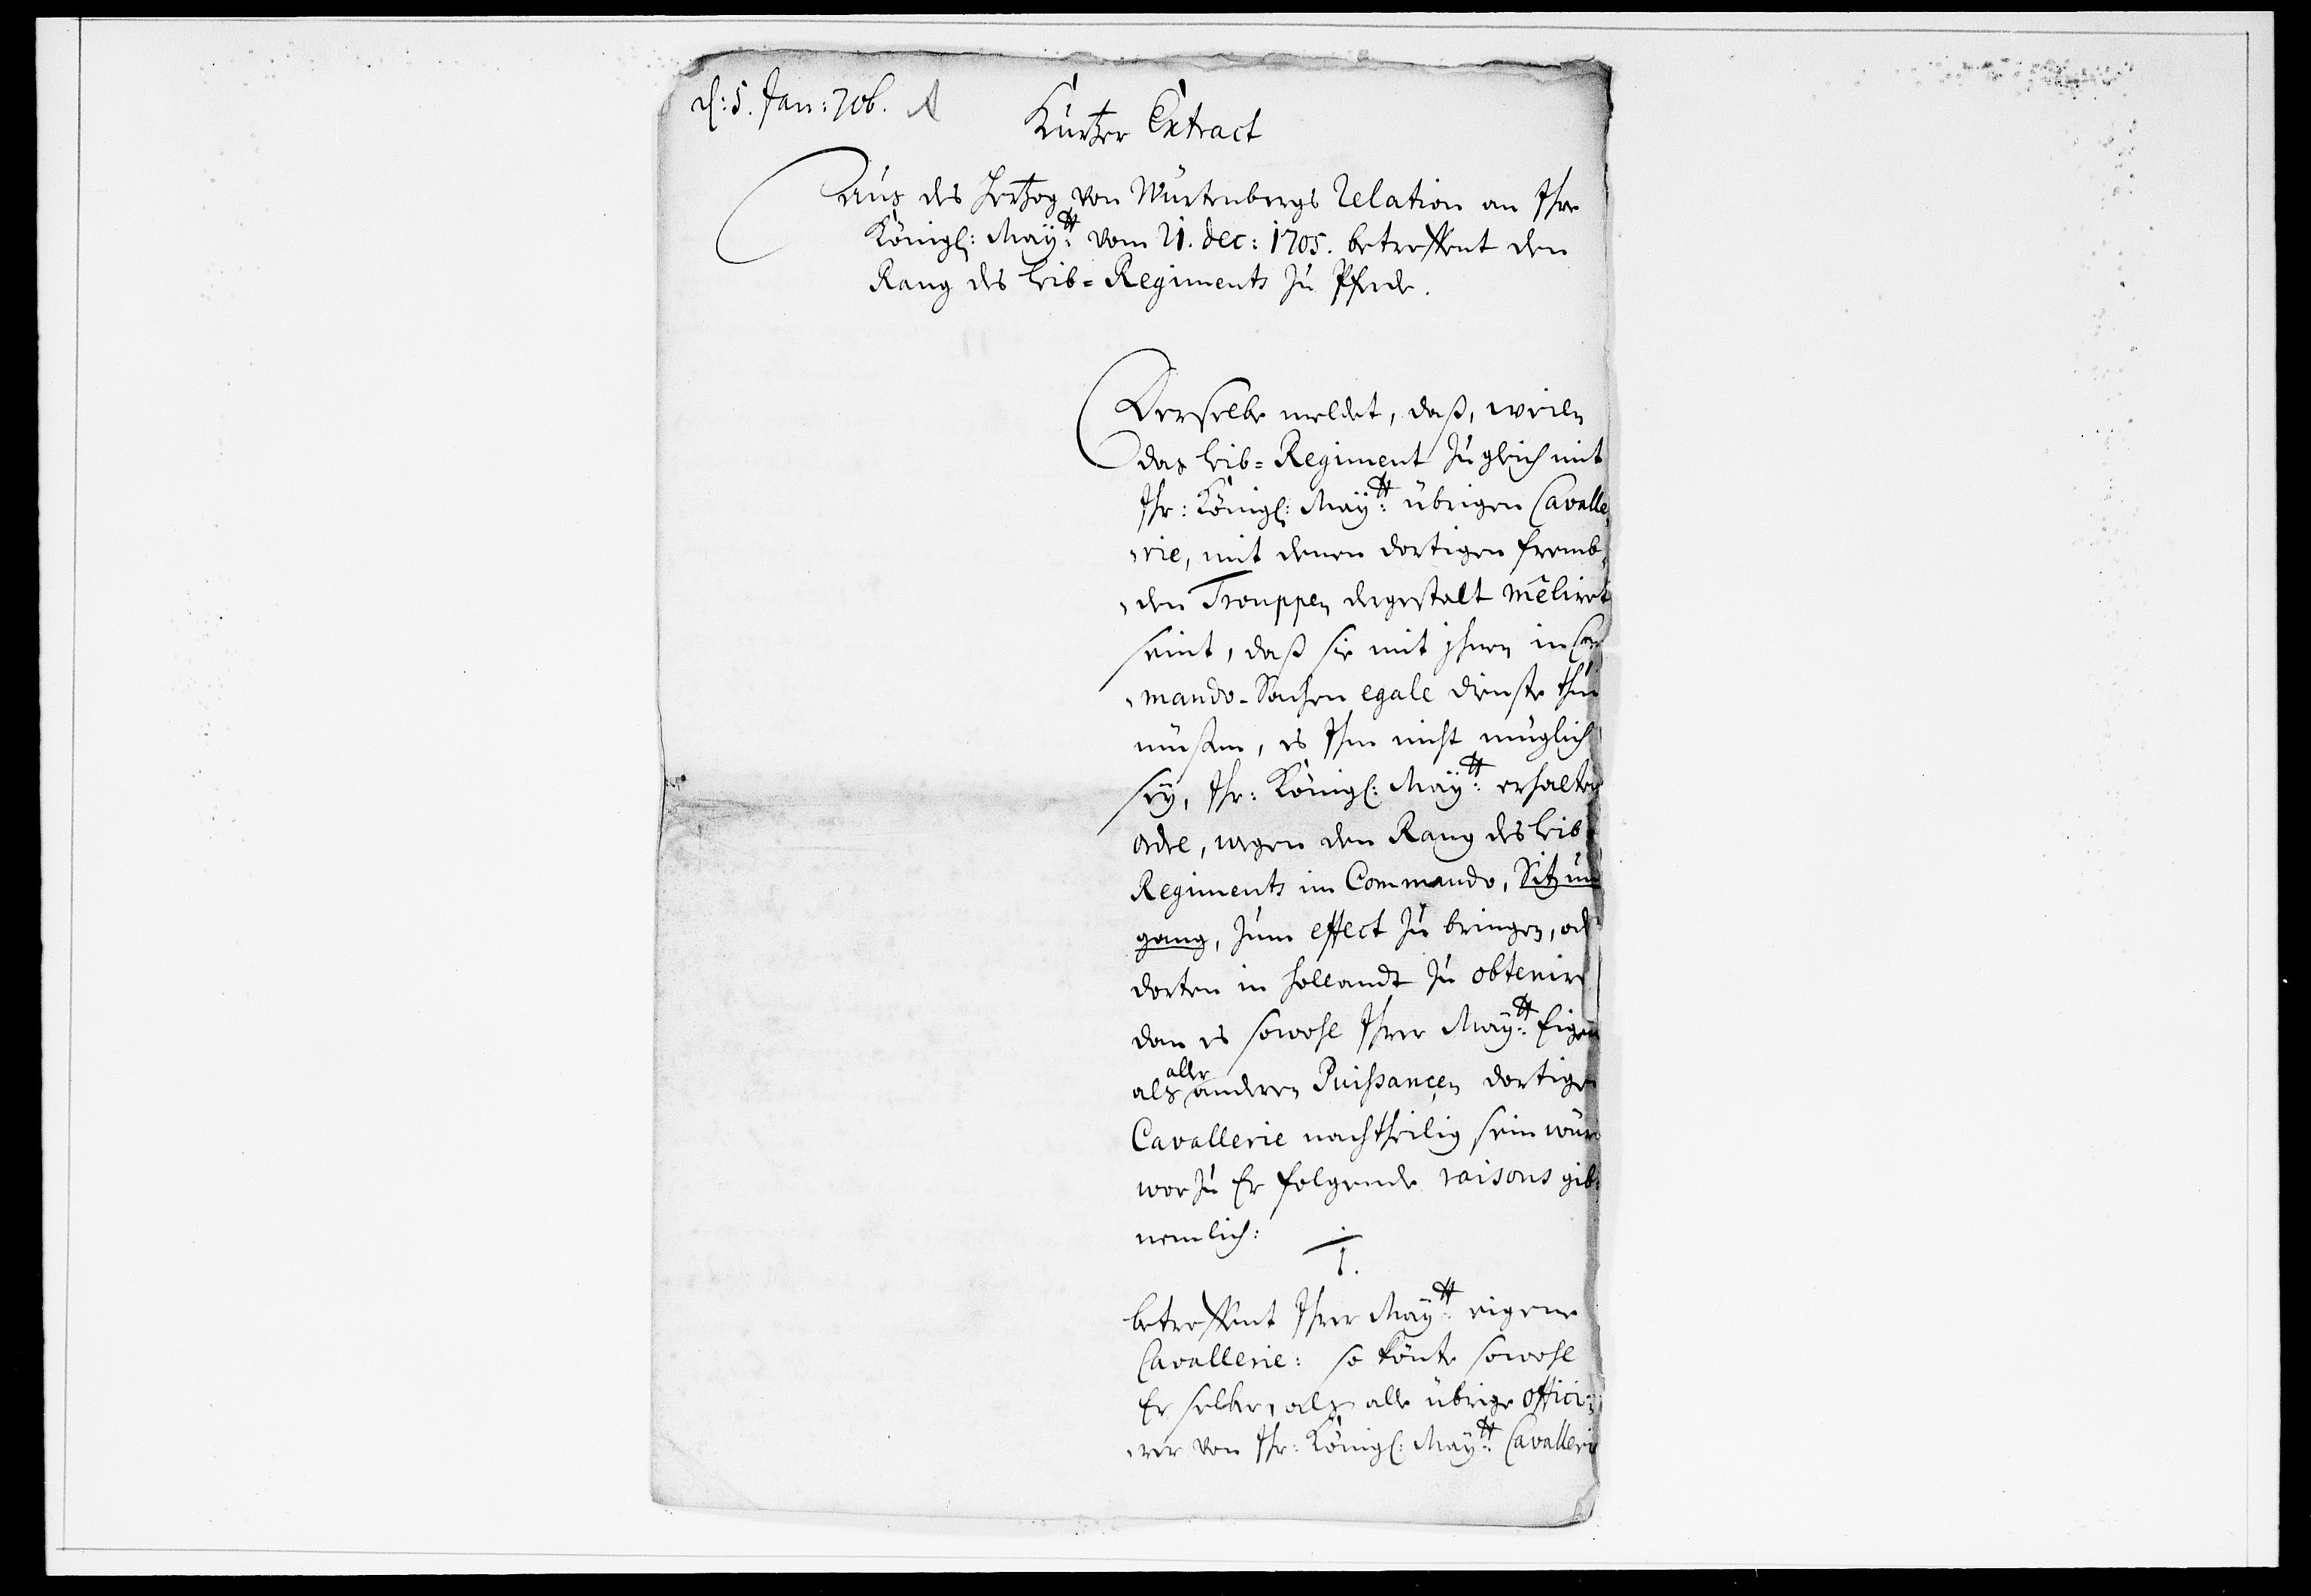 d: 5. Jan: 706. A
Kurtzer Extract
aus des Hertzog von Würtenbergs Relation an Ihre
Königl: May:tt vom 21. dec: 1705. betreffent den
Rang des leib=Regiments zu Pferde.
Derselbe meldet, daß, weiln
das leib=Regiment zugleich mit
Ihr: Königl: May:tt übrigen Cavalle,
,rie, mit denen dortigen fremb,
,den Trouppen dergestalt mêliret
seint, daß sie mit ihnen in Com
,mando-Sachen egale dienste thun
müßen, es Ihm nicht müglich
sey, Ihr: Königl: May:tt erhalten
ordre, wegen den Rang des leib=
Regiments im Commando, Sitz und
gang, zum effect zu bringen, od
dorten in Hollandt zu obtenire
dan es sowohl Ihrer May:tt Eigen
als alle anderen Puissancen dortigen
Cavallerie nachtheilig sein würd
worzu Er folgende raisons gibt
nemlich:
1.
betreffent Ihrer May:tt eigene
Cavallerie: so könte sowohl
Er selber, als alle übrige offici=
,rer von Ihr: Königl: May:tt Cavallerie